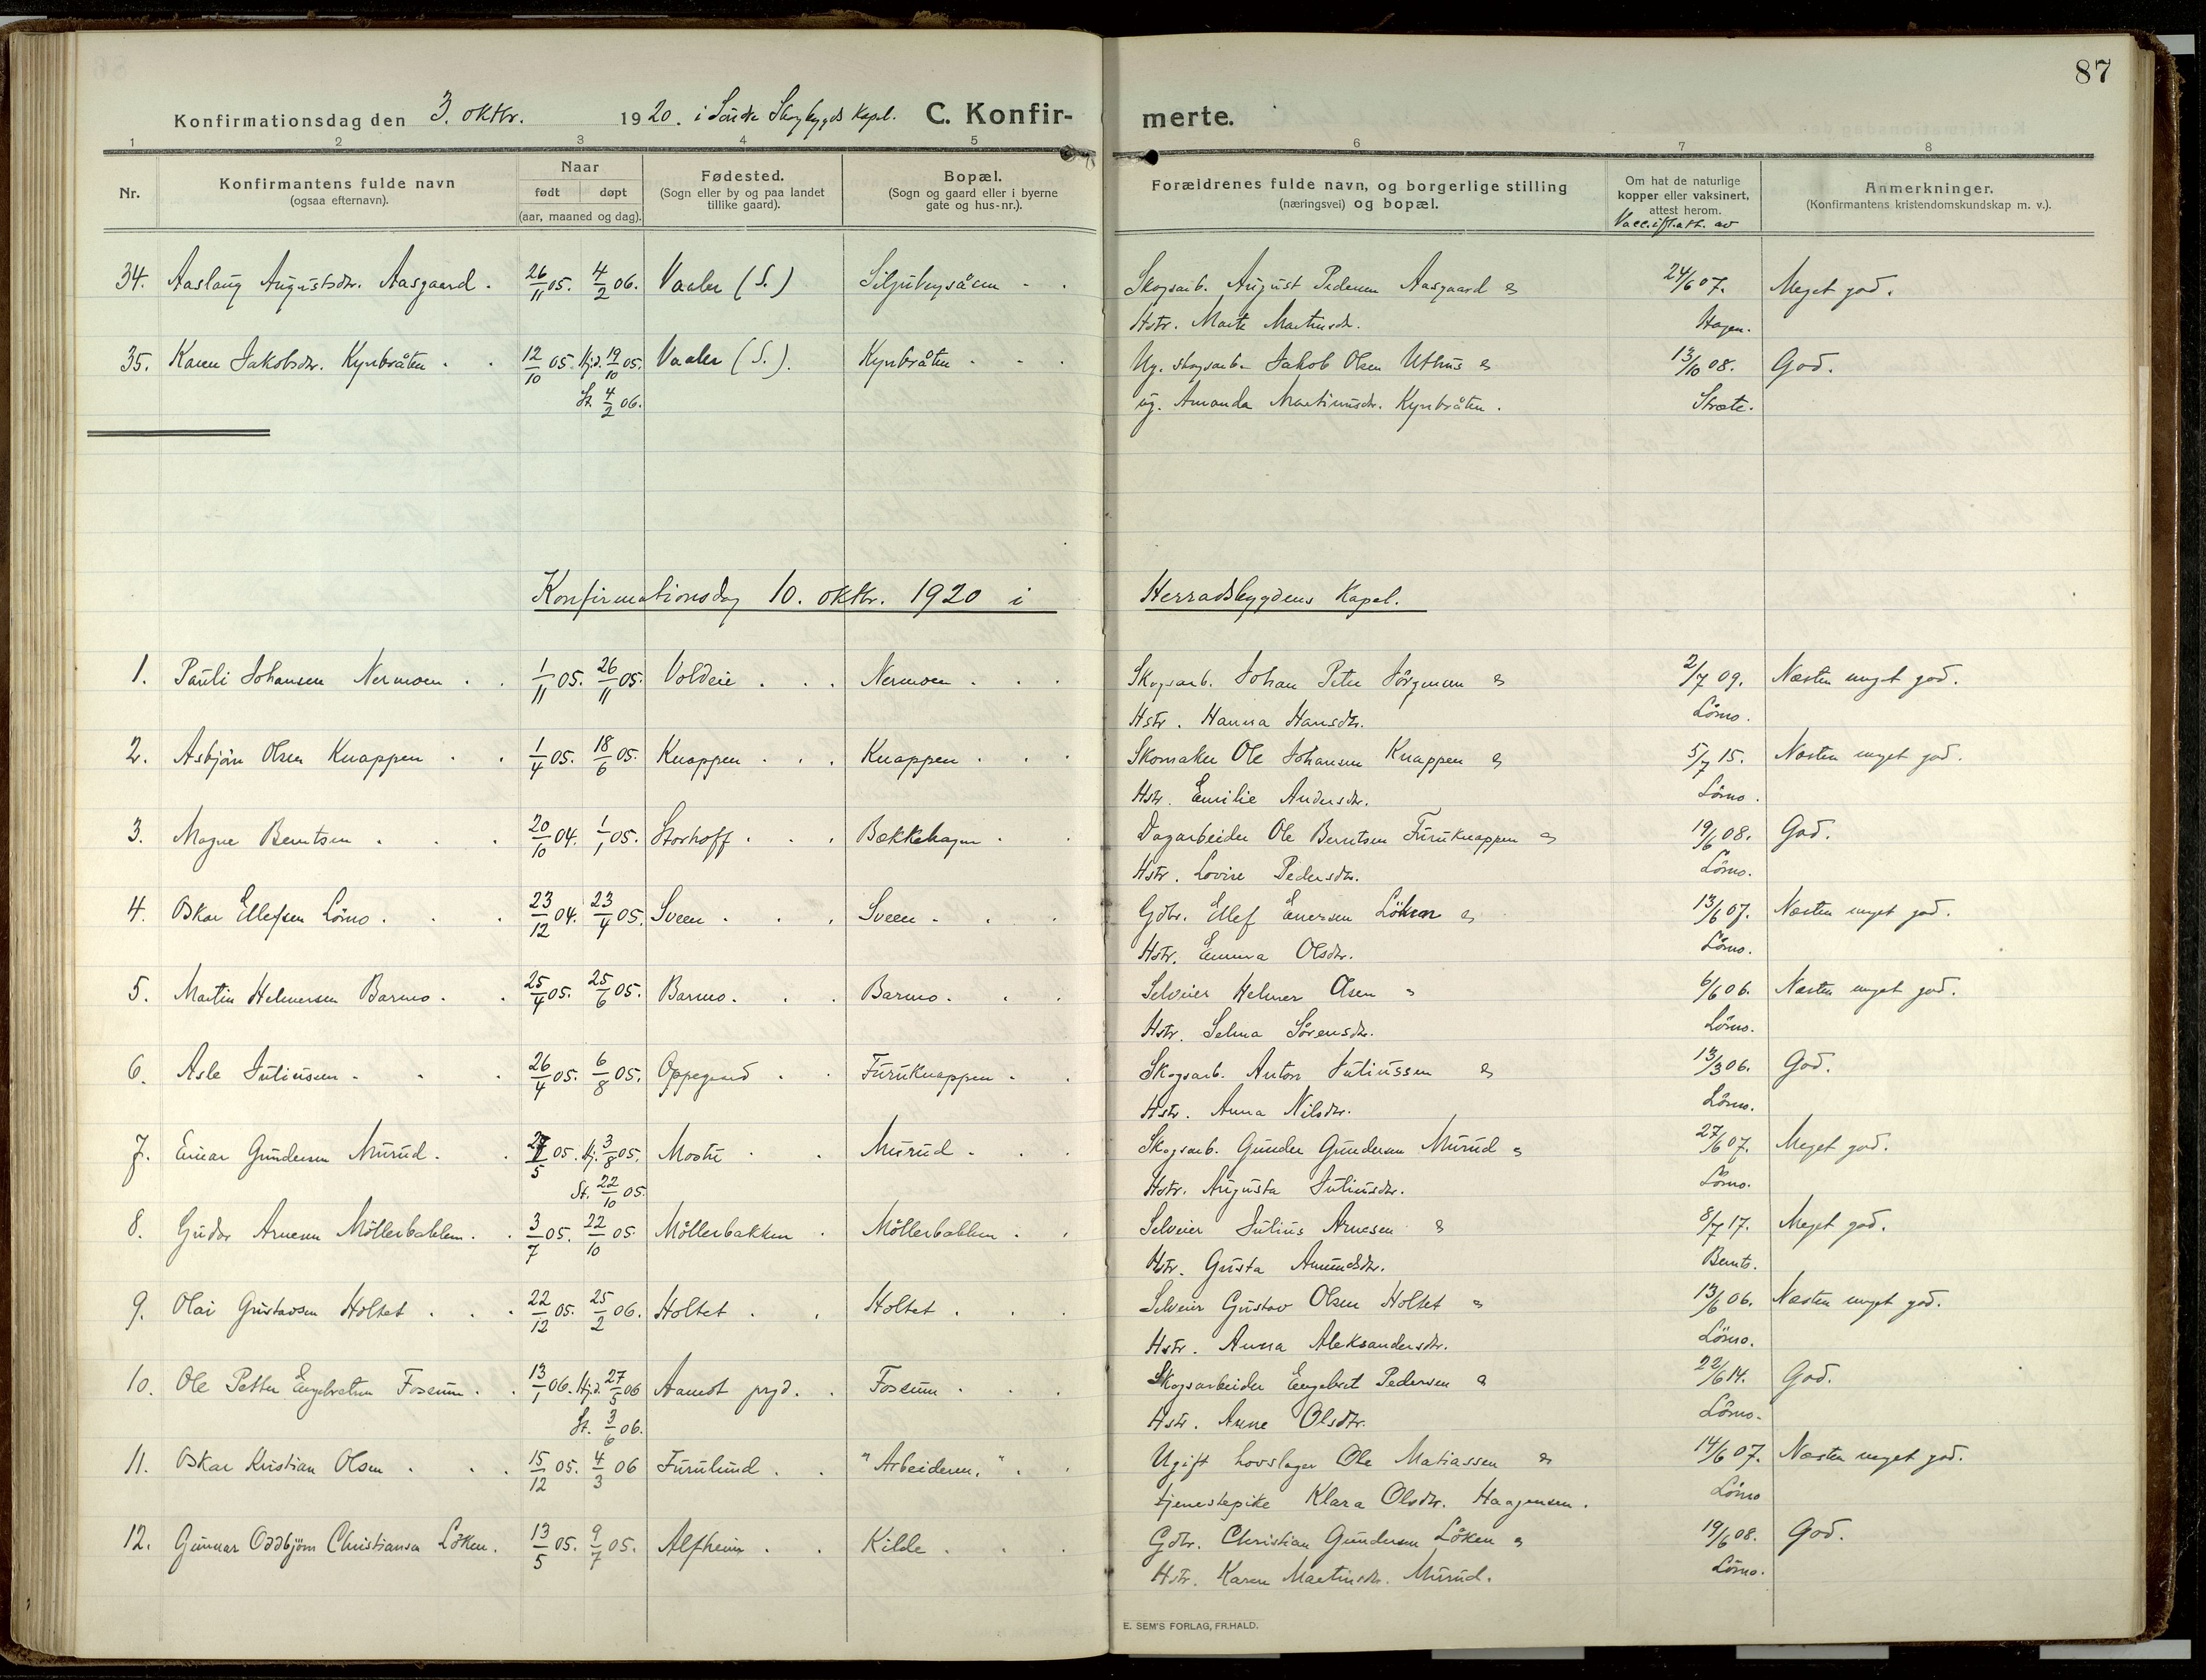 87
Konfirmationsdag den 3. oktbr. 1920. i Söndre Skogbygds Kapel. C. Konfir- merte.
1 2 3 4 5 6 7 8
Nr. Konfirmantens fulde navn (ogsaa efternavn). Naar født døpt (aar, maaned og dag). Fødested. (Sogn eller by og paa landet tillike gaard). Bopæl. (Sogn og gaard eller i byerne gate og hus-nr.). Forældrenes fulde navn, og borgerlige stilling (næringsvei) og bopæl. Om hat de naturlige kopper eller vaksinert, attest herom. Vacc. ifl. att. av Anmerkninger. (Konfirmantens kristendomskundskap m. v.).
34. Aaslaug Augustsdtr. Aasgaard. 26/11 05. 4/2 06. Vaaler (S.) Skogsarb. August Pedersen Aasgaard og 24/6 07. Meget god.
Hstr. Marte Martinsdtr. Hagen.
35. Karen Jakobsdtr. Kynbråten 12/10 05. Hjd. 19/10 05. Vaaler (S.). Kynbråten Ug. skogsarb. Jakob Olsen Uthus og 13/10 08. God.
St. 4/2 06. ug. Amanda Martinusdtr. Kynbråten. Stræte.
Konfirmationsdag 10. oktbr. 1920 i Herradsbygdens Kapel.
1. Pauli Johansen Nermoen 1/11 05. 26/11 05. Voldeie Nermoen Skogsarb. Johan Peter Jörgensen og 2/7 09. Næsten meget god.
Hstr. Hanna Hansdtr. Lömo.
2. Asbjörn Olsen Knappen 1/4 05. 18/6 05. Knappen Knappen Skomaker Ole Johansen Knappen og 5/7 15. Næsten meget god.
Hstr. Emilie Andersdtr. Lömo.
3. Magne Berntsen 20/10 04. 1/1 05. Storhoff Bækkehagen Dagarbeider Ole Berntsen Furuknappen og 19/6 08. God.
Hstr. Lovise Pedersdtr. Lömo.
4. Oskar Ellefsen Lömo. 23/12 04. 23/4 05. Sveen Sveen Gdbr. Ellef Enersen Löken og 13/6 07. Næsten meget god.
Hstr. Emma Olsdtr. Lömo.
5. Martin Helmersen Barmo. 25/4 05. 25/6 05. Barmo. Barmo. Selveier Helmer Olsen og 6/6 06. Næsten meget god.
Hstr. Selma Sörensdtr. Lömo.
6. Asle Juliussen 26/4 05. 6/8 05. Oppegaard Furuknappen Skogsarb. Anton Juliussen og 13/3 06. God.
Hstr. Anna Nilsdtr. Lömo.
7. Einar Gundersen Murud. /5 05. Hj. 3/8 05. Mostu Murud Skogsarb. Gunder Gundersen Murud og 27/6 07. Meget god.
St. 22/10 05. Hstr. Augusta Juliusdtr. Lömo.
8. Gudor Arnesen Möllerbakken. 3/7 05. 22/10 05. Möllerbakken Möllerbakken Selveier Julius Arnesen og 8/7 17. Meget god.
Hstr. Gusta Amundsdtr. Bernts.
9. Olai Gustavsen Holtet 22/12 05. 25/2 06. Holtet Holtet Selveier Gustav Olsen Holtet og 13/6 06. Næsten meget god.
Hstr. Anna Aleksandersdtr. Lömo.
10. Ole Petter Engebretsen Fossum. 13/1 06. Hjd. 27/5 06 Aamot prgd. Fossum Skogsarbeider Engebret Pedersen og 22/6 14. God.
St. 3/6 06. Hstr. Anne Olsdtr. Lömo.
11. Oskar Kristian Olsen 15/12 05. 4/3 06 Furulund "Arbeideren." Ugift hovslager Ole Matiassen og 14/6 07. Næsten meget god.
tjenestepike Klara Olsdtr. Haagensen. Lömo
12. Gunnar Oddbjörn Christiansen Löken. 13/5 05. 9/7 05. Alfheim Kilde Gdbr. Christian Gundersen Löken og 19/6 08. God.
Hstr. Karen Martinsdtr. Murud. Lömo.
E. SEM'S FORLAG, FR.HALD.